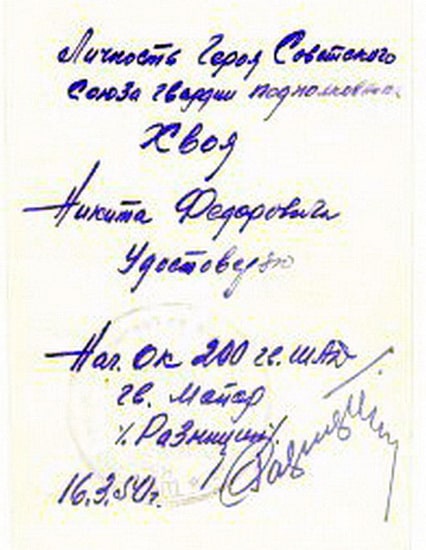 Личность Героя Советского
Союза гвардии подполковника
Хвоя
Никита Федорович
Удостоверяю
Нач. ОК 200 гв. ШАД
гв. майор
/Разницин/
16.3.54г.